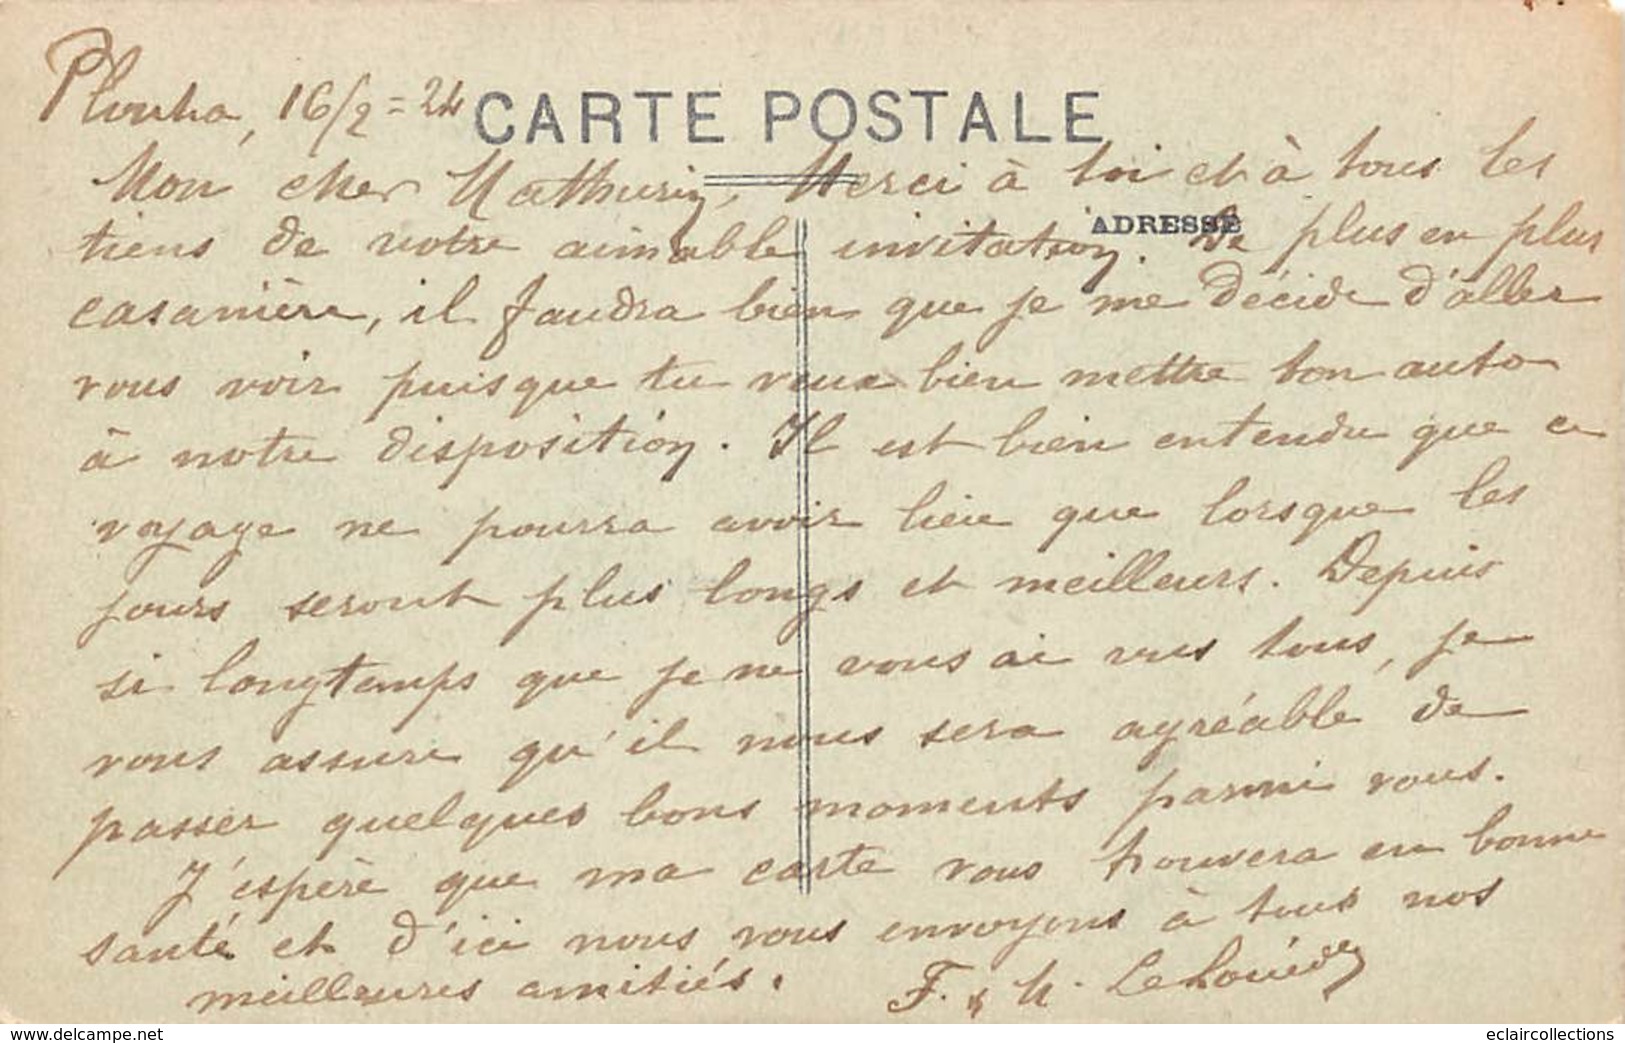 Plouha, 16/2 = 24
CARTE POSTALE
Mon cher Mathurin, Merci à toi et à tous les
ADRESSE
tiens de votre aimable invitation. De plus en plus
casanière, il faudra bien que je me décide d'aller
vous voir puisque tu veux bien mettre ton auto
à notre disposition. Il est bien entendu que ce
voyage ne pourra avoir lieu que lorsque les
jours seront plus longs et meilleurs. Depuis
si longtemps que je ne vous ai vus tous, je
vous assure qu'il nous sera agréable de
passer quelques bons moments parmi vous.
J'espère que ma carte vous trouvera en bonne
santé et d'ici nous vous envoyons à tous nos
meilleures amitiés.
F. & M.
www.delcampe.net
eclaircollections